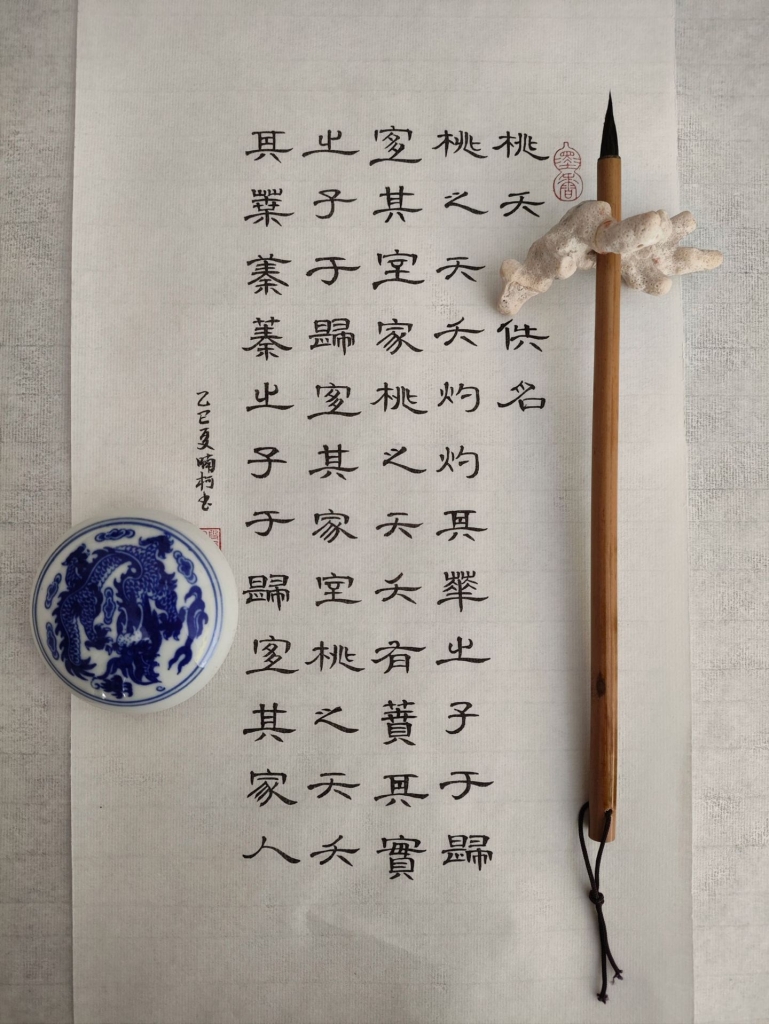 墨香
桃夭 佚名
桃之夭夭灼灼其華之子于歸
宜其室家桃之夭夭有蕡其實
之子于歸宜其家室桃之夭夭
其葉蓁蓁之子于歸宜其家人
乙巳夏喃柯书